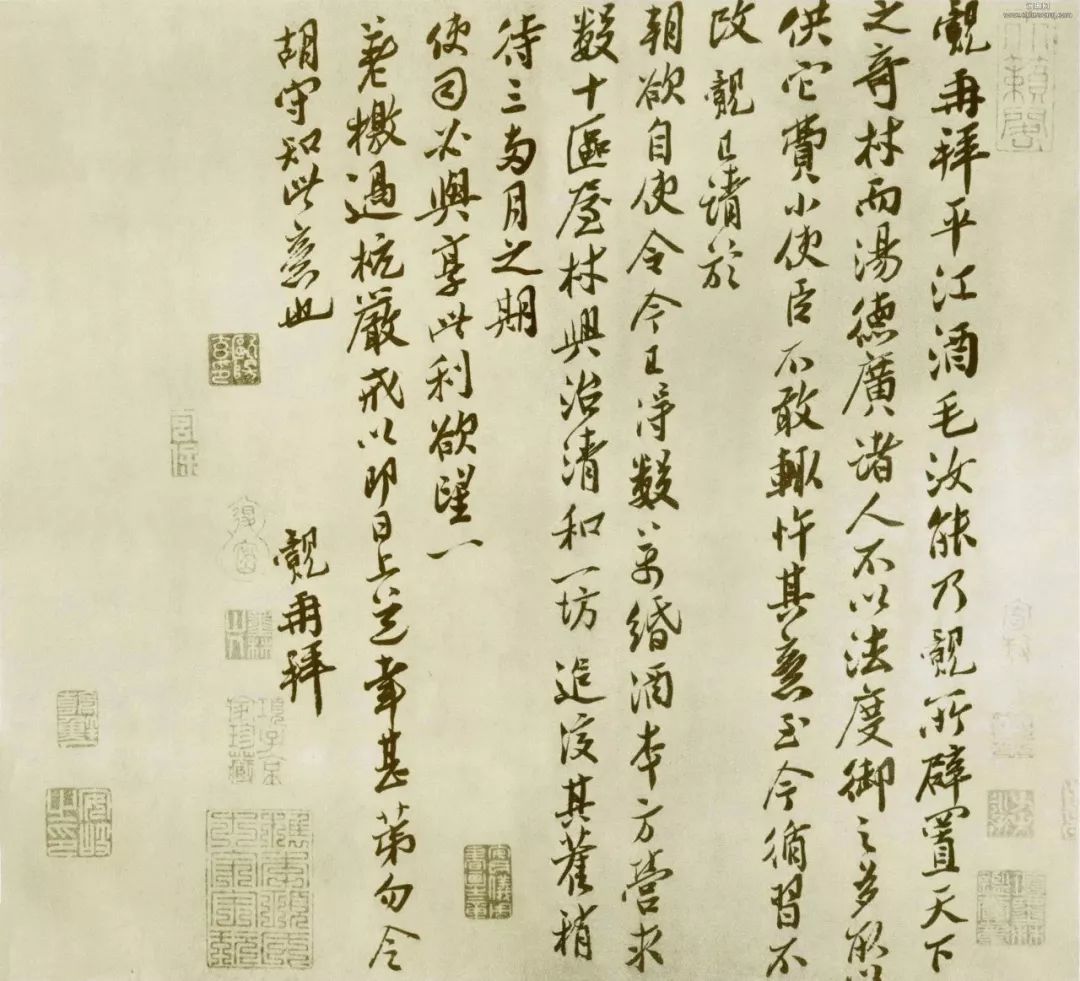 覿再拜平江酒毛汝能乃覿所辟置天下
之奇材而湯德廣諸人不以法度御之多以
供它費小使臣不敢輒忤其意至今循習不
改 覿已請於
朝欲自使令今已得數萬緡酒本方營求
數十區屋材興治清和一坊追復其舊稍
待三兩月之期
使司必與享此利欲望一
檄過杭嚴戒以即日上道幸甚第勿令
胡守知此意也
覿再拜
天籟閣